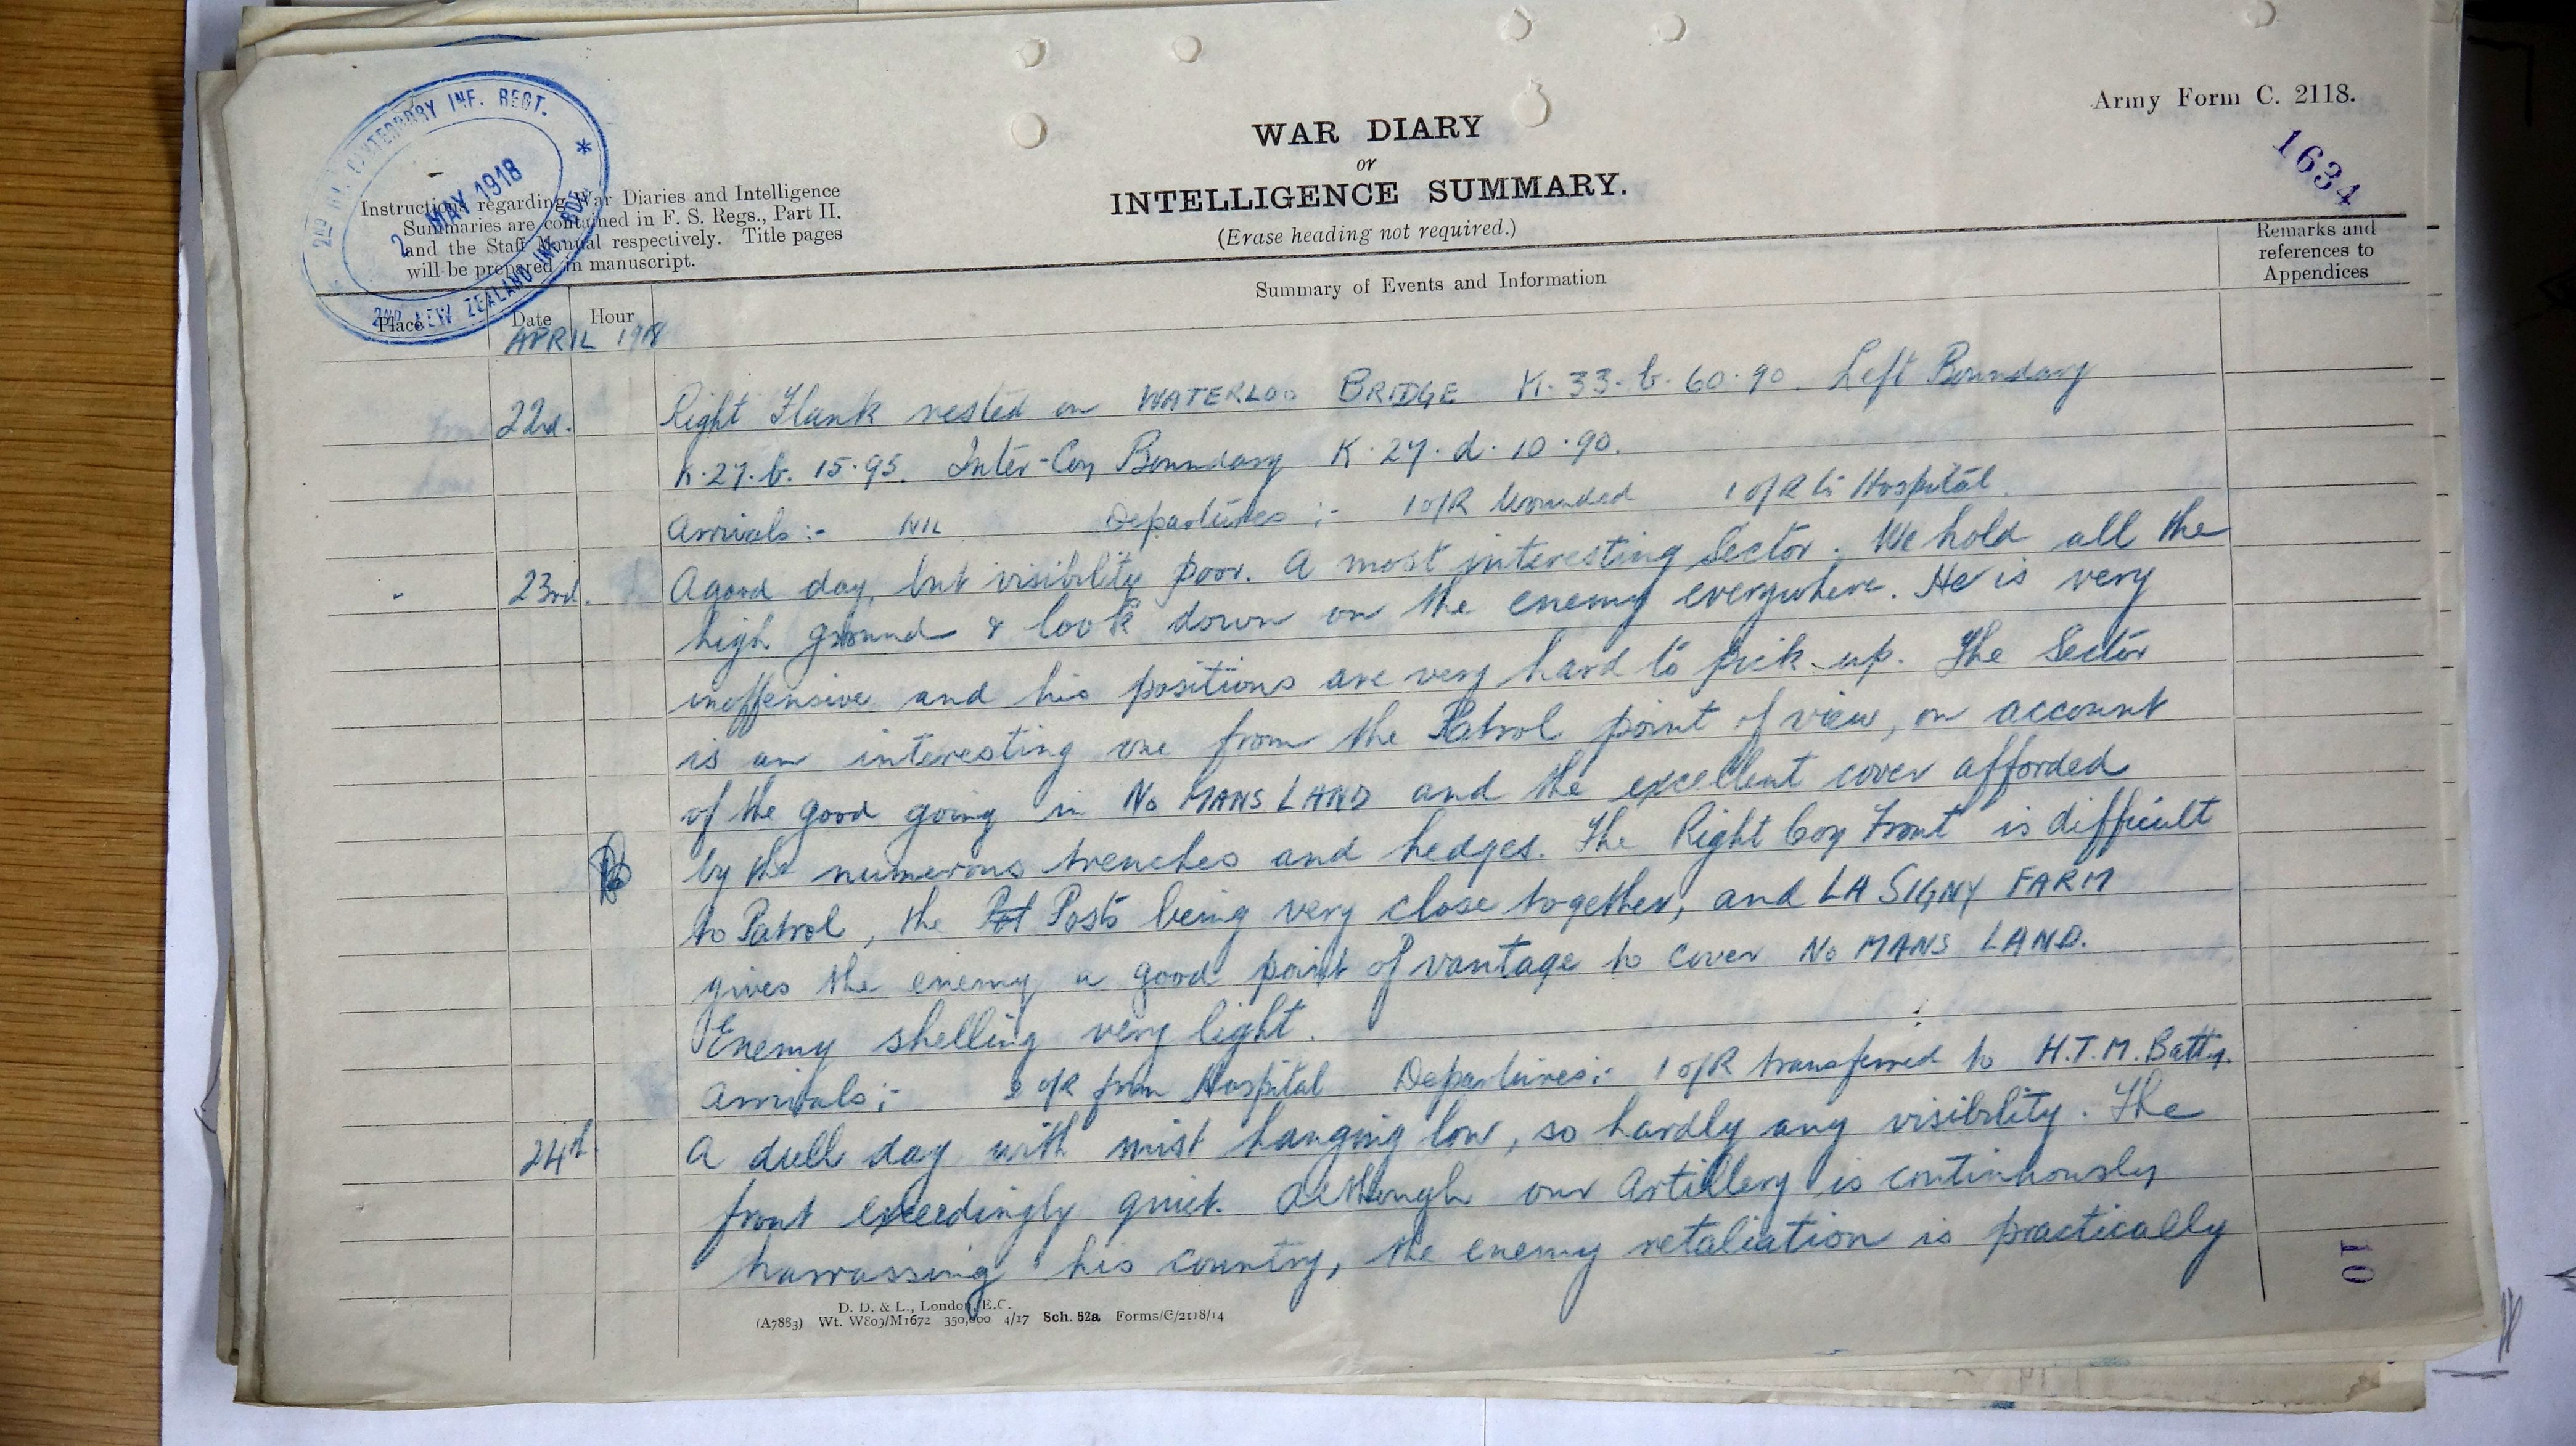 Army Form C. 2118.
1634
WAR DIARY
or
INTELLIGENCE SUMMARY.
(Erase heading not required.)
2ND CANTERBURY INF. REGT.
2 MAY 1918
2ND NEW ZEALAND INF. BDE.
Instructions regarding War Diaries and Intelligence
Summaries are contained in F. S. Regs., Part II.
and the Staff Manual respectively. Title pages
will be prepared in manuscript.
Place
Date
Hour
Summary of Events and Information
Remarks and
references to
Appendices
APRIL 1918
22nd. Right Flank rested on WATERLOO BRIDGE K. 33. b. 60.90. Left Boundary
K.27.b. 15.95. Inter-Coy Boundary K.27.d.10.90.
Arrivals :- NIL Departures :- 1 o/R Wounded 1 o/R to Hospital.
23rd. A good day, but visibility poor. A most interesting Sector. We hold all the
high ground & look down on the enemy everywhere. He is very
inoffensive and his positions are very hard to pick up. The Sector
is an interesting one from the Patrol point of view, on account
of the good going in NO MANS LAND and the excellent cover afforded
by the numerous trenches and hedges. The Right Coy Front is difficult
to Patrol, the Posts being very close together, and LA SIGNY FARM
gives the enemy a good point of vantage to cover NO MANS LAND.
Enemy shelling very light.
Arrivals :- 2 o/R from Hospital Departures :- 1 o/R transferred to H.T.M. Batty.
24th. A dull day with mist hanging low, so hardly any visibility. The
front exceedingly quiet. Although our Artillery is continuously
harrassing his country, the enemy retaliation is practically
10
D. D. & L., London, E.C.
(A7883) Wt. W809/M1672 350,000 4/17 Sch. 52a Forms/C/2118/14